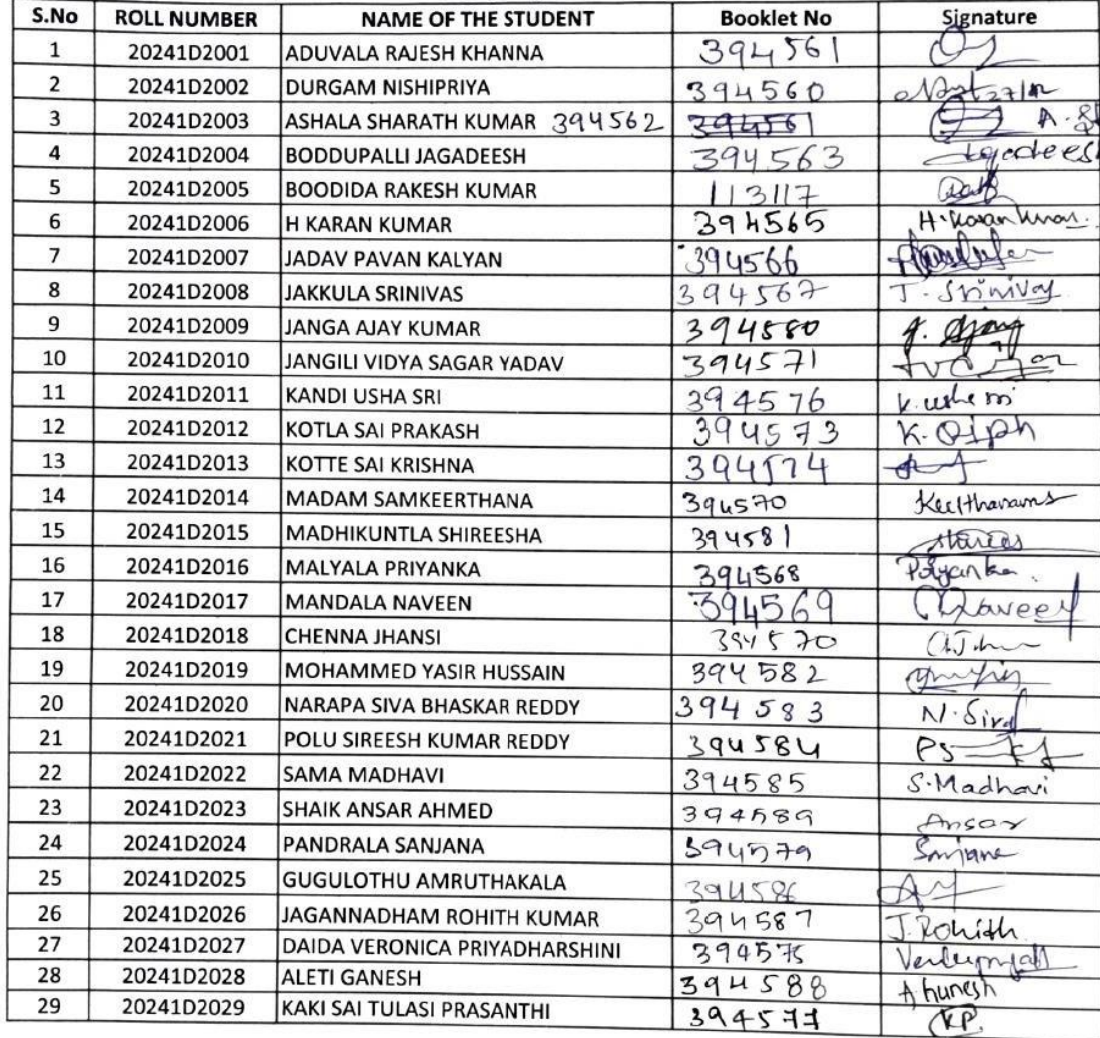 S.No ROLL NUMBER NAME OF THE STUDENT Booklet No Signature
1 20241D2001 ADUVALA RAJESH KHANNA 394561
2 20241D2002 DURGAM NISHIPRIYA 394560
3 20241D2003 ASHALA SHARATH KUMAR 394562 394561
4 20241D2004 BODDUPALLI JAGADEESH 394563 Jagadeesh
5 20241D2005 BOODIDA RAKESH KUMAR 113117
6 20241D2006 H KARAN KUMAR 394565 H.Karan Kumar.
7 20241D2007 JADAV PAVAN KALYAN 394566
8 20241D2008 JAKKULA SRINIVAS 394567 J. Srinivas
9 20241D2009 JANGA AJAY KUMAR 394580 J. Ajay
10 20241D2010 JANGILI VIDYA SAGAR YADAV 394571
11 20241D2011 KANDI USHA SRI 394576 K.usha sri
12 20241D2012 KOTLA SAI PRAKASH 394573 K.
13 20241D2013 KOTTE SAI KRISHNA 394574
14 20241D2014 MADAM SAMKEERTHANA 394570
15 20241D2015 MADHIKUNTLA SHIREESHA 394581
16 20241D2016 MALYALA PRIYANKA 394568 Priyanka.
17 20241D2017 MANDALA NAVEEN 394569 Naveen
18 20241D2018 CHENNA JHANSI 394570
19 20241D2019 MOHAMMED YASIR HUSSAIN 394582
20 20241D2020 NARAPA SIVA BHASKAR REDDY 394583 N.Siva
21 20241D2021 POLU SIREESH KUMAR REDDY 394584 PS
22 20241D2022 SAMA MADHAVI 394585 S.Madhavi
23 20241D2023 SHAIK ANSAR AHMED 394589 Ansar
24 20241D2024 PANDRALA SANJANA 394579 Sanjana
25 20241D2025 GUGULOTHU AMRUTHAKALA 394586
26 20241D2026 JAGANNADHAM ROHITH KUMAR 394587 J.Rohith
27 20241D2027 DAIDA VERONICA PRIYADHARSHINI 394575
28 20241D2028 ALETI GANESH 394588
29 20241D2029 KAKI SAI TULASI PRASANTHI 394577 KP.